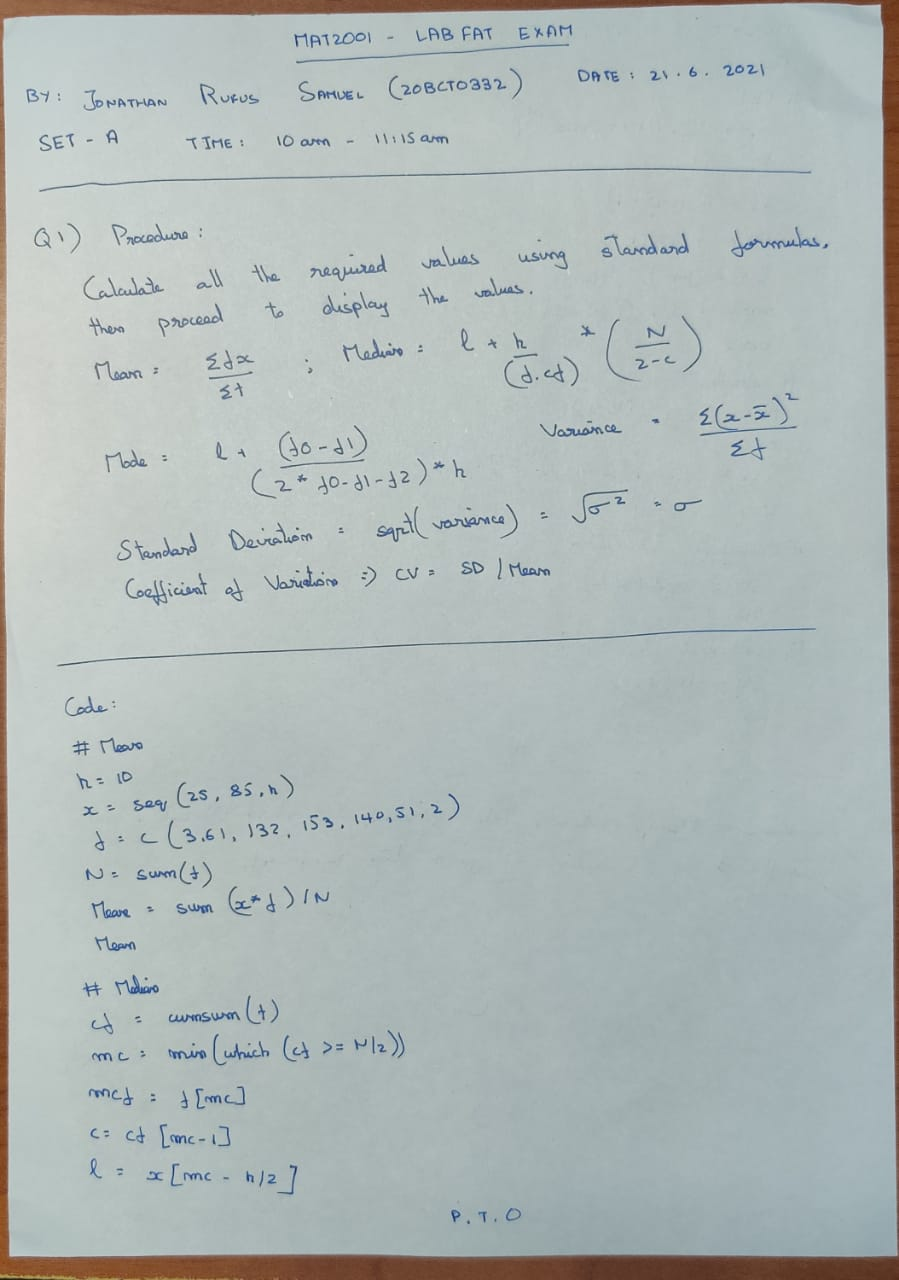 MAT2001 - LAB FAT EXAM
BY: JONATHAN RUFUS SAMUEL (20BCT0332) DATE: 21.6.2021
SET - A TIME: 10 am - 11:15 am
Q1) Procedure:
Calculate all the required values using standard formulas,
then proceed to display the values.
Mean = Σfx / Σf ; Median = l + h / (f.cf) * (N / 2-c)
Mode = l + (f0-f1) / (2* f0-f1-f2) * h Variance = Σ(x-x̄)² / Σf
Standard Deviation = sqrt(variance) = √σ² = σ
Coefficient of Variation => CV = SD / Mean
Code:
# Mean
h = 10
x = seq (25, 85, h)
f = c (3,61, 132, 153, 140, 51, 2)
N = sum(f)
Mean = sum (x*f) / N
Mean
# Median
cf = cumsum(f)
mc = min(which (cf >= N/2))
mcf = f[mc]
c = cf [mc-1]
l = x[mc - h/2]
P.T.O